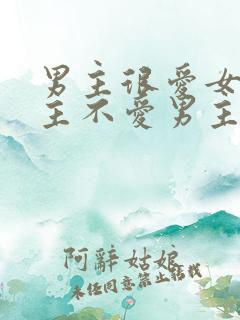 男主很爱女
主不爱男主
阿辭姑娘
未经同意禁止转载